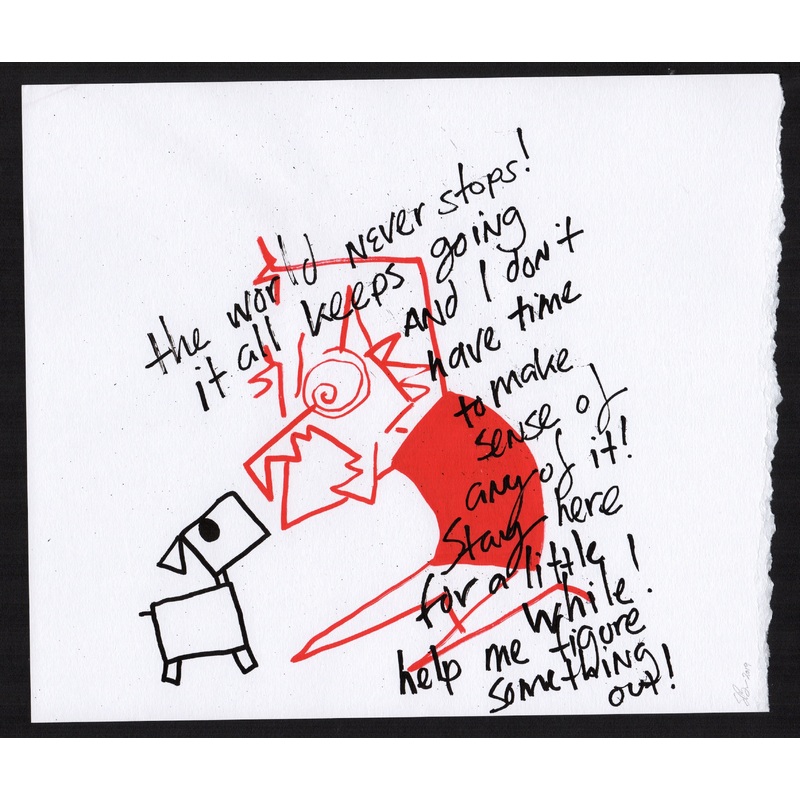 the world never stops!
it all keeps going
and I don't
have time
to make
sense of
any of it!
Stay here
for a little
while!
help me figure
something
out!